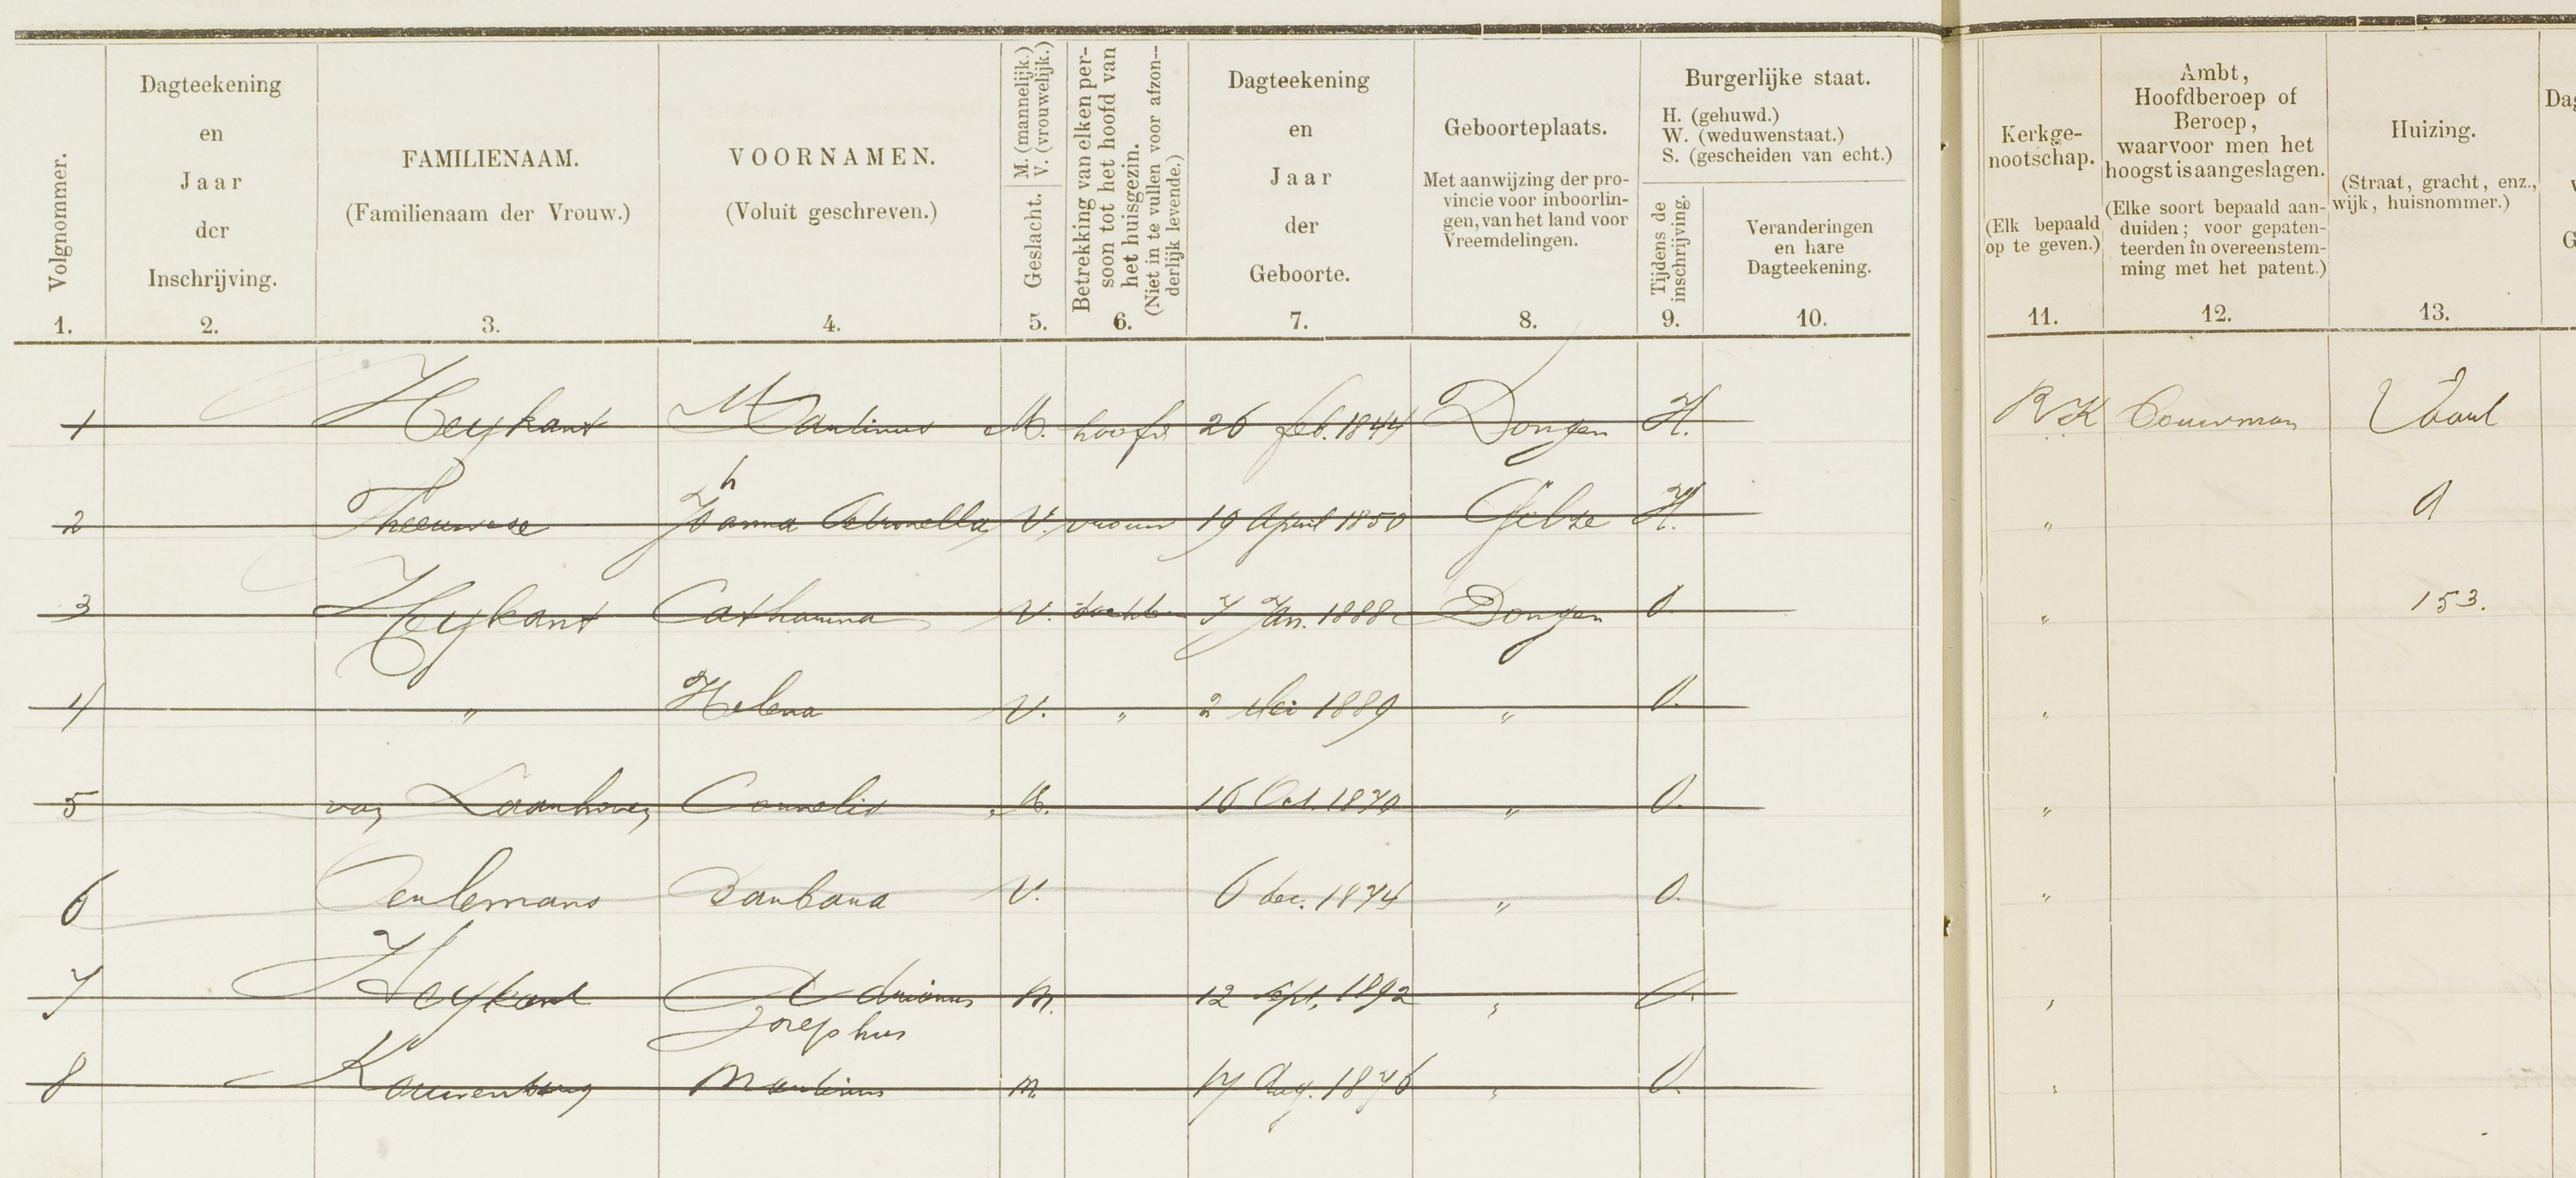 Volgnommer.
1.
Dagteekening
en
Jaar
der
Inschrijving.
2.
FAMILIENAAM.
(Familienaam der Vrouw.)
3.
VOORNAMEN.
(Voluit geschreven.)
4.
M. (mannelijk.)
V. (vrouwelijk.)
Geslacht.
5.
Betrekking van elken per-
soon tot het hoofd van
het huisgezin.
(Niet in te vullen voor afzon-
derlijk levende.)
6.
Dagteekening
en
Jaar
der
Geboorte.
7.
Geboorteplaats.
Met aanwijzing der pro-
vincie voor inboorlin-
gen, van het land voor
Vreemdelingen.
8.
Burgerlijke staat.
H. (gehuwd.)
W. (weduwenstaat.)
S. (gescheiden van echt.)
Tijdens de
inschrijving.
9.
Veranderingen
en hare
Dagteekening.
10.
Kerkge-
nootschap.
(Elk bepaald
op te geven.)
11.
Ambt,
Hoofdberoep of
Beroep,
waarvoor men het
hoogst is aangeslagen.
(Elke soort bepaald aan-
duiden; voor gepaten-
teerden in overeenstem-
ming met het patent.)
12.
Huizing.
(Straat, gracht, enz.,
wijk, huisnommer.)
13.
1 Heykant Martinus M. hoofd 26 feb. 1844 Dongen H. RK Bouwman Vaart
2 Theeuwese Johanna Petronella V. vrouw 19 April 1850 Gilze H. " A
3 Heykant Catharina V. dochter 7 Jan. 1888 Dongen O. " 153.
4 " Helena V. " 2 Mei 1889 " O. "
5 van Cornelis M. 16 Oct. 1870 " O. "
6 Oerlemans Barbara V. 6 dec. 1874 " O. "
7 Heykant Adrianus Josephus M. 12 Sept. 1892 " O. "
8 Kouwenberg Martinus M. 17 Aug. 1876 " O. "